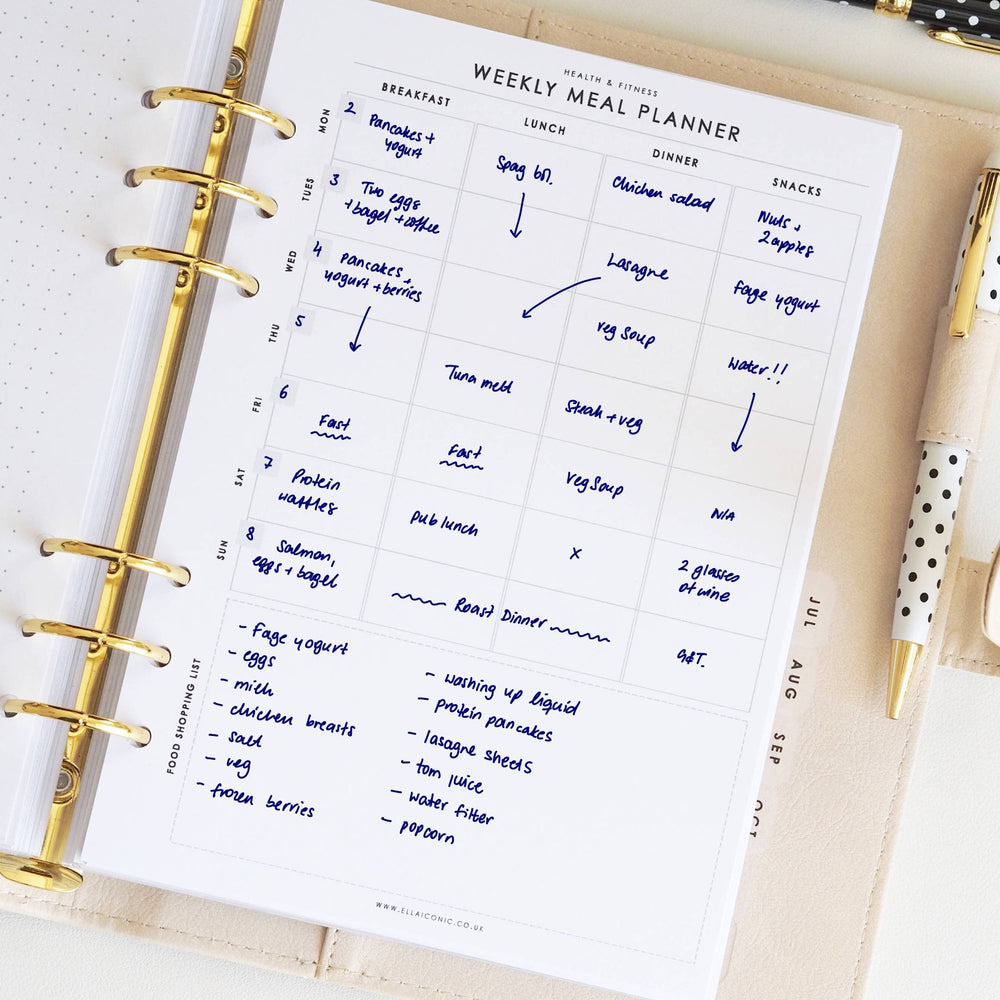 HEALTH & FITNESS
WEEKLY MEAL PLANNER
BREAKFAST
LUNCH
DINNER
SNACKS
MON
2
Pancakes +
yogurt
Spag bol.
Chicken salad
Nuts +
2 apples
TUES
3
Two eggs
+ bagel + coffee
Lasagne
Fage yogurt
WED
4
pancakes +
yogurt + berries
veg soup
Water!!
THU
5
Tuna melt
Steak + veg
FRI
6
Fast
Fast
veg soup
N/A
SAT
7
Protein
waffles
pub lunch
x
2 glasses
of wine
SUN
8
Salmon,
eggs + bagel
Roast Dinner
G&T.
FOOD SHOPPING LIST
- Fage yogurt
- eggs
- milk
- chicken breasts
- salt
- veg
- frozen berries
- washing up liquid
- protein pancakes
- lasagne sheets
- tom juice
- water filter
- popcorn
WWW.ELLAICONIC.CO.UK
JUL
AUG
SEP
OCT